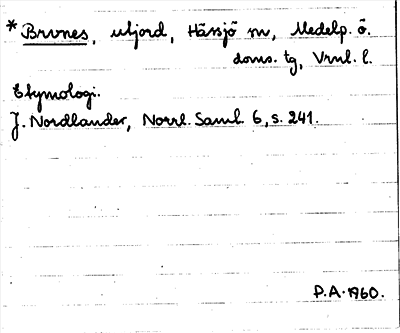 * Brunes, utjord, Hässjö sn, Medelp. ö.
doms. tg, Vrnl. l.
Etymologi.
J. Nordlander, Norrl. Saml. 6, s. 241.
P.A. 1960.